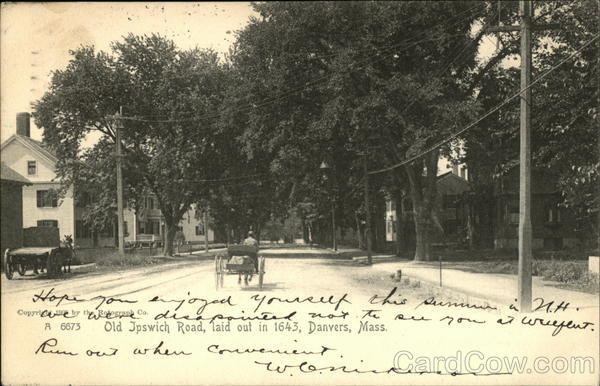 Hope you enjoyed yourself this summer in N.H.
Copyright 1905 by the Rotograph Co.
was disappointed not to see you at
A 6673 Old Ipswich Road, laid out in 1643, Danvers, Mass.
Run out when convenient.
CardCow.com